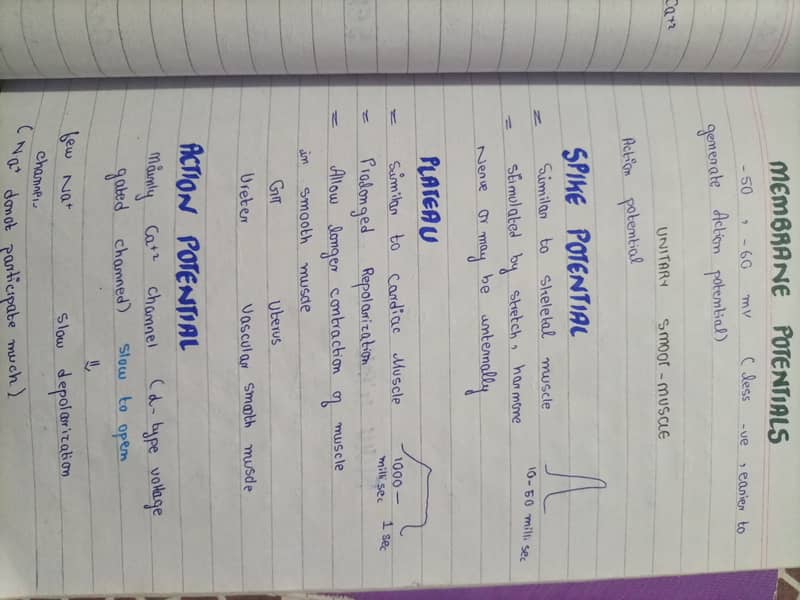 Ca+2
MEMBRANE POTENTIALS
-50, -60 mv (less -ve, easier to
generate Action potential)
UNITARY SMOOT-MUSCLE
Action potential
SPIKE POTENTIAL
= Similar to skeletal muscle
10-50 milli sec
= stimulated by stretch, hormone
Nerve or may be internally
PLATEAU
= Similar to Cardiac Muscle
1000 - 1 sec
milli sec
= Prolonged Repolarization
= Allow longer contraction of muscle
in smooth muscle
GIT Uterus
Ureter Vascular smooth muscle
ACTION POTENTIAL
Mainly Ca+2 channel (L-type voltage
gated channel) slow to open
few Na+ slow depolarization
channel.
(Na+ donot participate much)